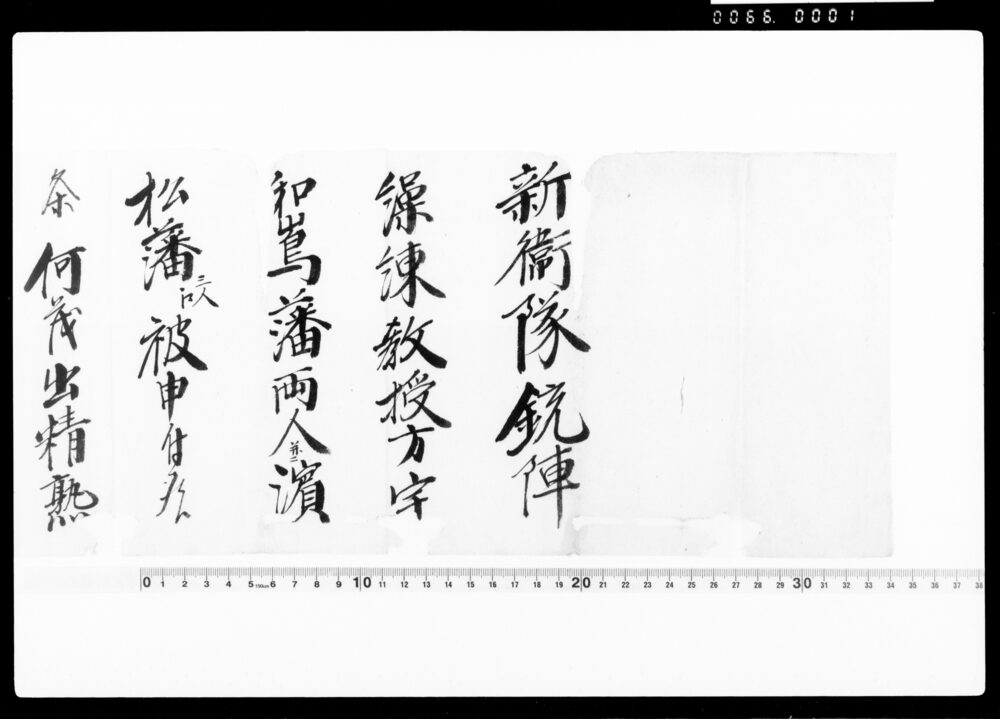 0066. 0001
新衞隊銃陣
繰練教授方宇
和嶌藩両人并ニ濱
松藩三人江被申付候
条何茂出精熟
0 1 2 3 4 5 150cm 6 7 8 9 10 11 12 13 14 15 16 17 18 19 20 21 22 23 24 25 26 27 28 29 30 31 32 33 34 35 36 37 38